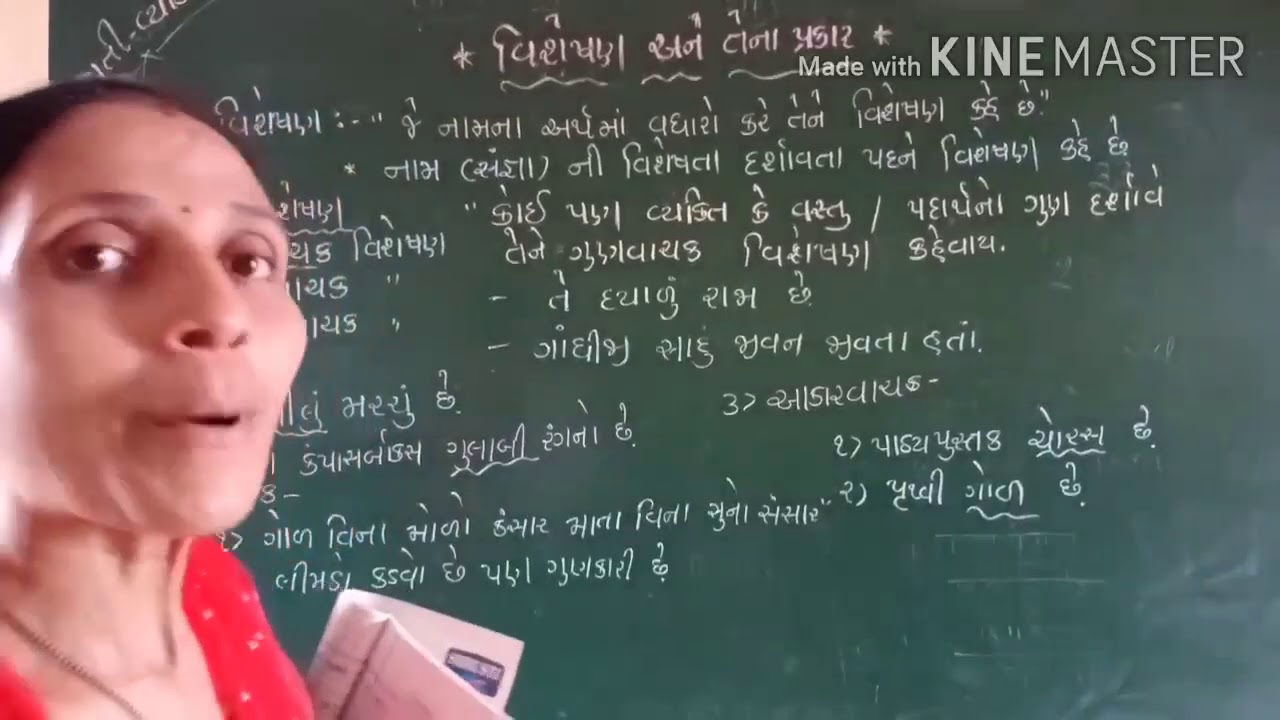 * વિશેષણ અને તેના પ્રકાર *
Made with KINEMASTER
વિશેષણ :- " જે નામના અર્થમાં વધારો કરે તેને વિશેષણ કહે છે."
* નામ (સંજ્ઞા) ની વિશેષતા દર્શાવતા પદને વિશેષણ કહે છે
" કોઈ પણ વ્યક્તિ કે વસ્તુ / પદાર્થનો ગુણ દર્શાવે
વિશેષણ તેને ગુણવાચક વિશેષણ કહેવાય.
- તે દયાળું રામ છે
- ગાંધીજી સાદું જીવન જીવતા હતાં.
મરચું છે.
૩> આકારવાચક -
કંપાસબોક્સ ગુલાબી રંગનો છે.
૧) પાઠ્યપુસ્તક ચોરસ છે.
૨) પૃથ્વી ગોળ છે.
૧> ગોળ વિના મોળો કંસાર માતા વિના સુનો સંસાર"
લીમડો કડવો છે પણ ગુણકારી છે